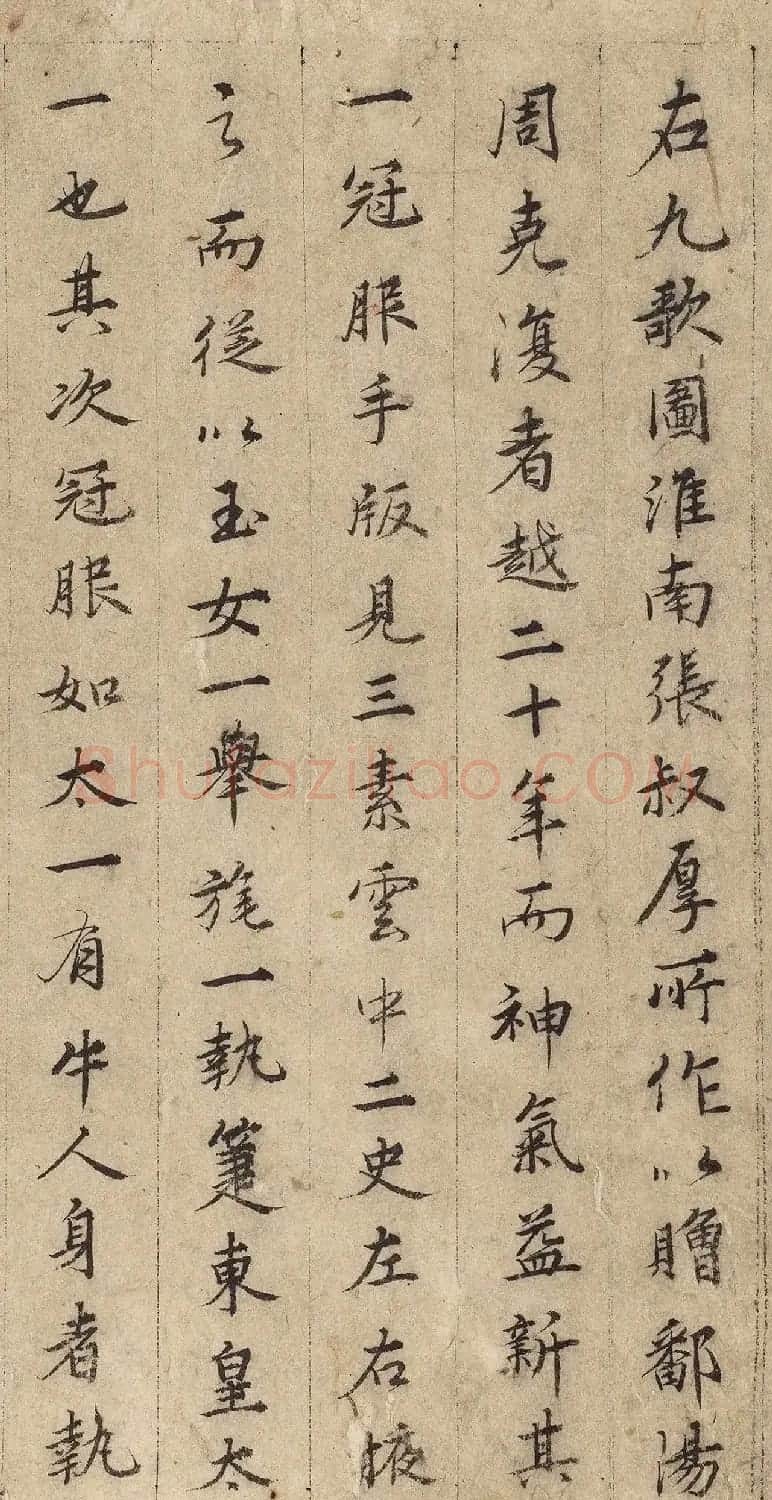 右九歌圖淮南張叔厚所作以贈鄱陽
周克復者越二十年而神氣益新其
一冠服手版見三素雲中二史左右掖
之而從以玉女一舉旄一執箑東皇太
一也其次冠服如太一有牛人身者執
Shufaziliao.COM